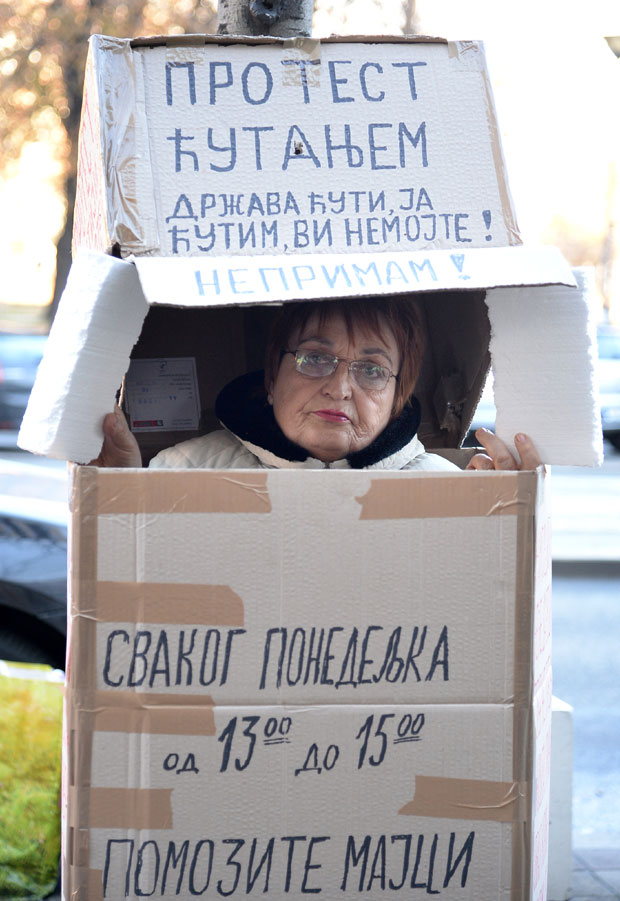 ПРОТЕСТ
ЋУТАЊЕМ
ДРЖАВА ЋУТИ, ЈА
ЋУТИМ, ВИ НЕМОЈТЕ!
НЕПРИМАМ!
СВАКОГ ПОНЕДЕЉКА
ОД 13⁰⁰ ДО 15⁰⁰
ПОМОЗИТЕ МАЈЦИ